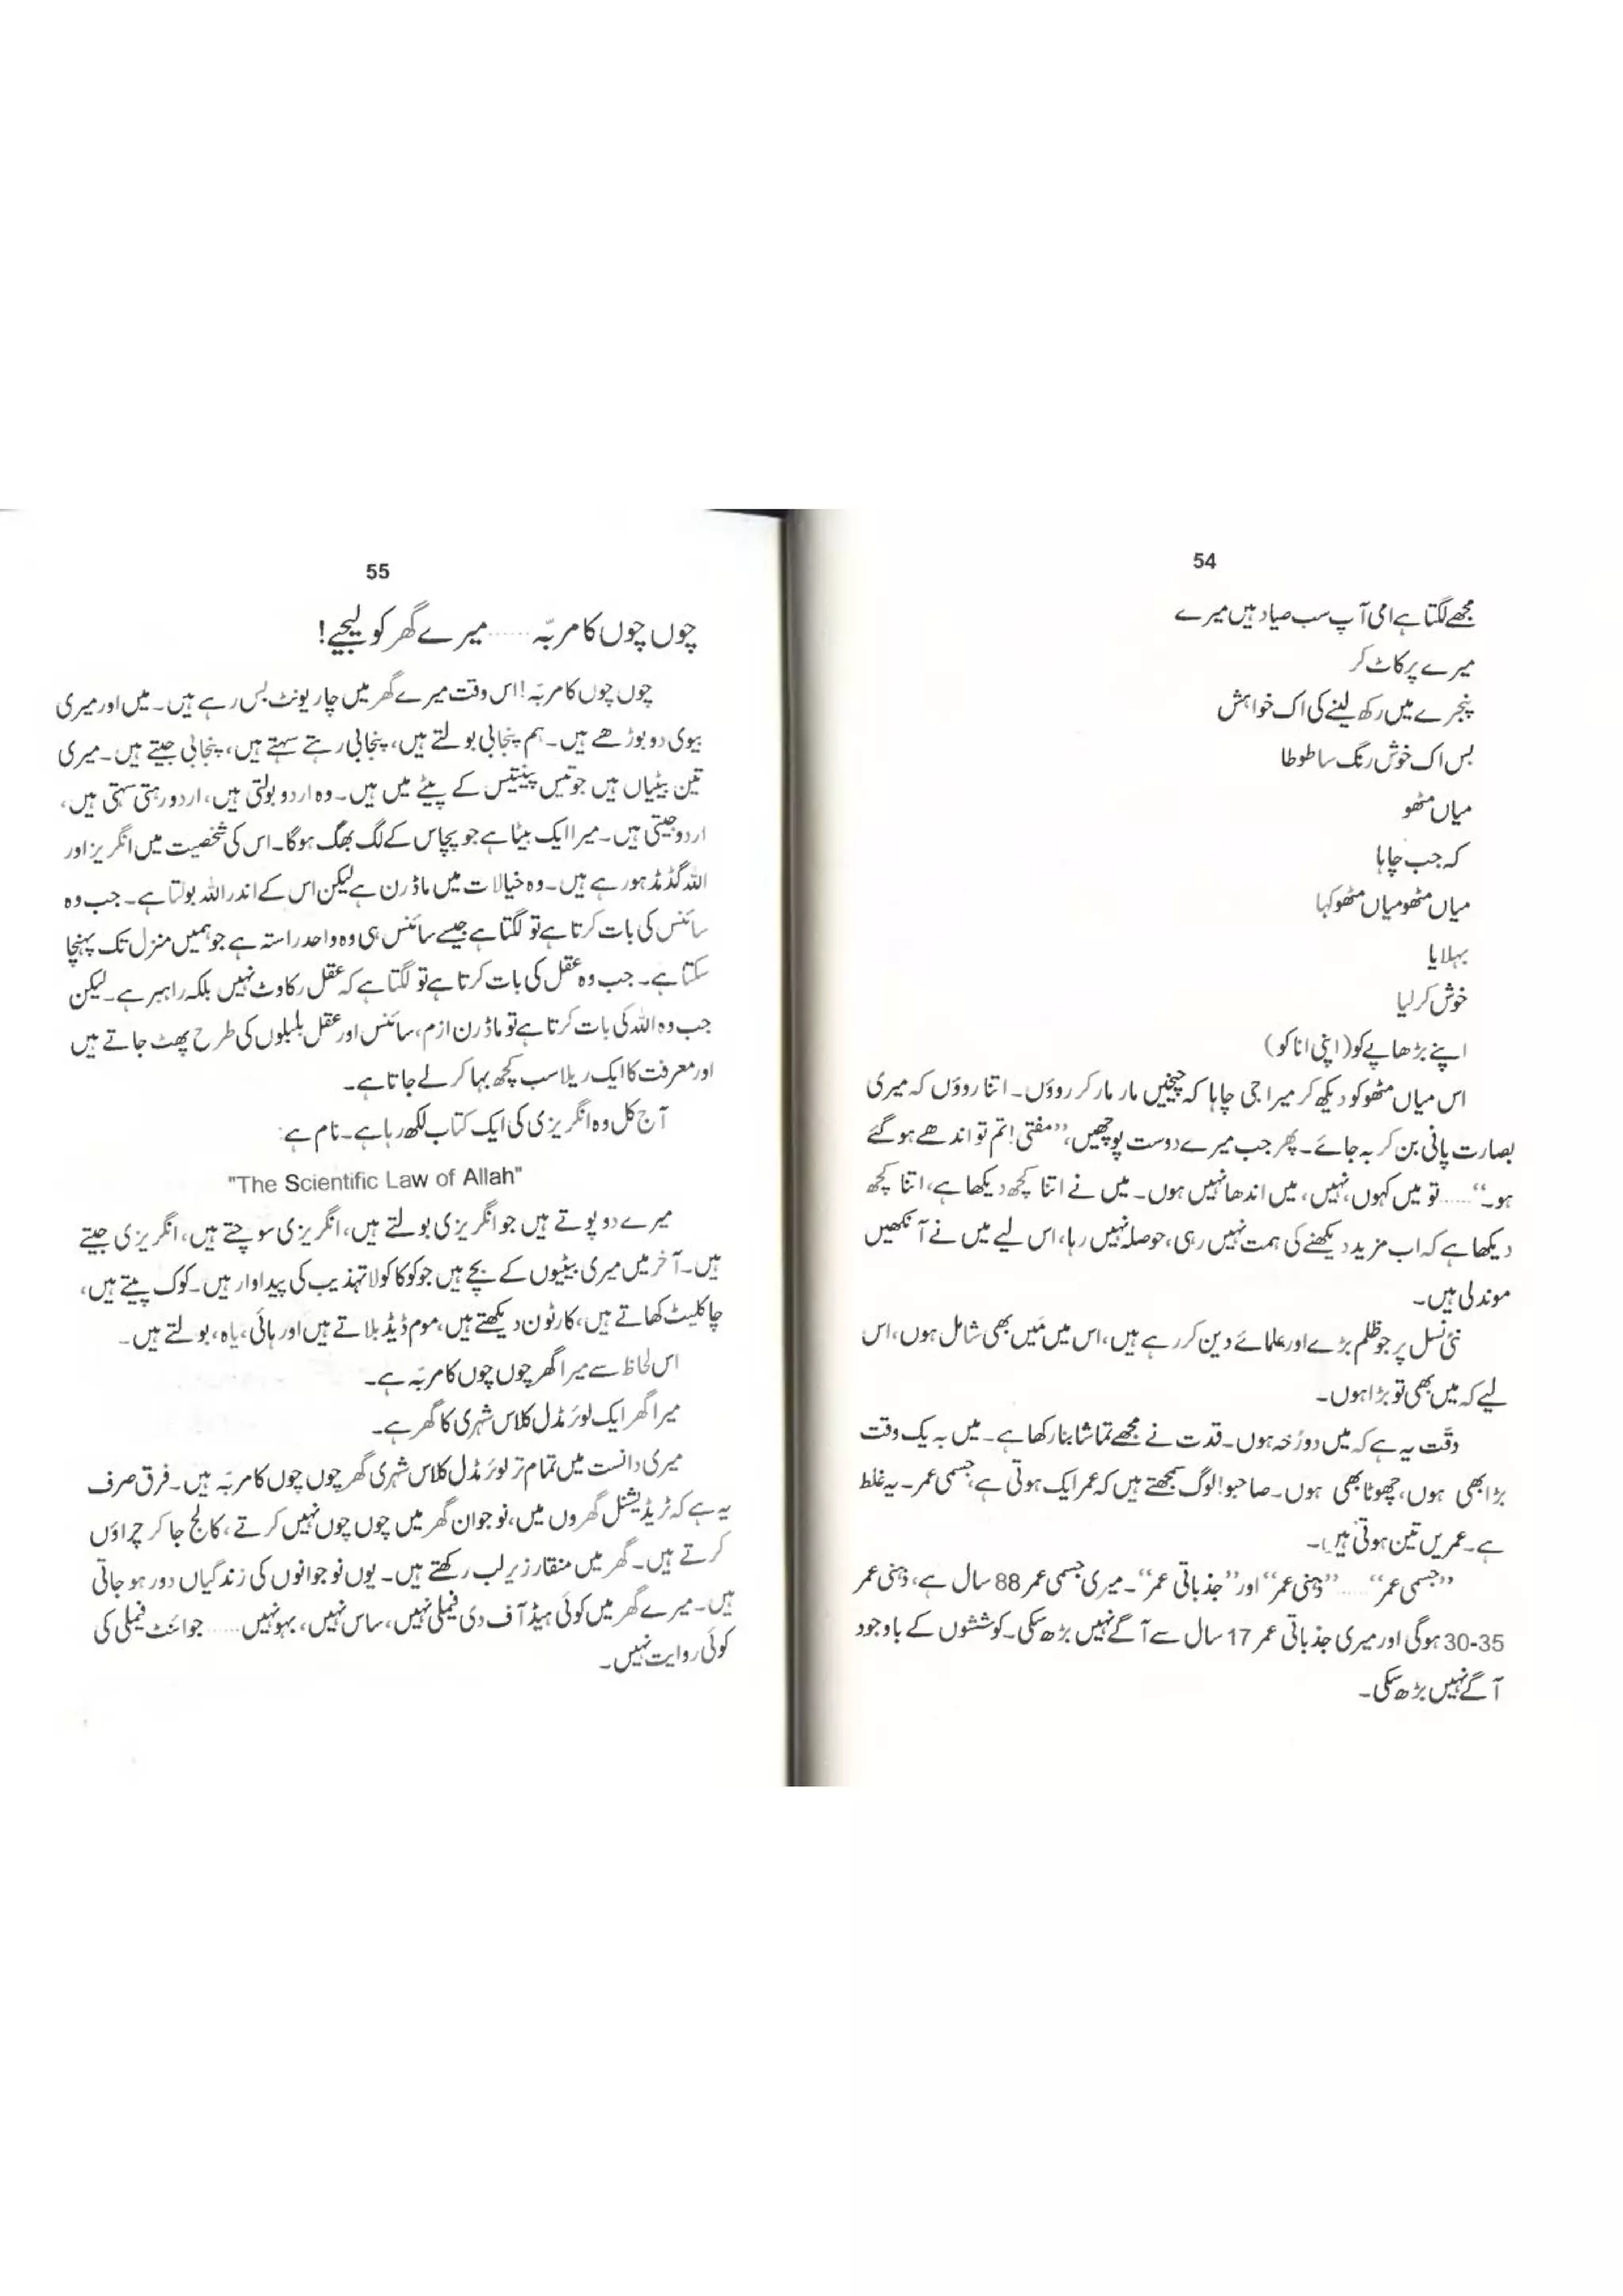 54
مجھے لگتا ہے امی آپ سب صیاد ہیں میرے
میرے پر کاٹ کر
پنجرے میں رکھ لینے کی اک خواہش
بس اک خوش رنگ سا طوطا
میاں مٹھو
کہ جب چاہا
میاں مٹھو میاں مٹھو کہا
بہلایا
خوش کر لیا
اپنے بڑھاپے کو (اپنی انا کو)
اس میاں مٹھو کو دیکھ کر میرا جی چاہا کہ چیخیں مار مار کر روؤں۔ اتنا روؤں کہ میری
بصارت پانی بن کر بہ جائے۔ پھر جب میرے دوست پوچھیں، ’’مفتی! تم تو اندھے ہو گئے
ہو۔‘‘ ...... تو میں کہوں، نہیں، میں اندھا نہیں ہوں۔ میں نے اتنا کچھ دیکھا ہے، اتنا کچھ
دیکھا ہے کہ اب مزید دیکھنے کی ہمت نہیں رہی، حوصلہ نہیں رہا، اس لیے میں نے آنکھیں
موند لی ہیں۔
نئی نسل پر جو ظلم بڑے اور علمائے دین کر رہے ہیں، اس میں مَیں بھی شامل ہوں، اس
لیے کہ میں بھی تو بڑا ہوں۔
دقّت یہ ہے کہ میں دو رُخہ ہوں۔ قدت نے مجھے تماشا بنا رکھا ہے۔ میں بہ یک وقت
بڑا بھی ہوں، چھوٹا بھی ہوں۔ صاحبو! لوگ سمجھتے ہیں کہ عمر ایک ہوتی ہے، جسمی عمر۔ یہ غلط
ہے۔ عمریں تین ہوتی ہیں۔
’’جسمی عمر‘‘ ...... ’’ذہنی عمر‘‘ اور ’’جذباتی عمر‘‘۔ میری جسمی عمر 88 سال ہے، ذہنی عمر
30-35 ہوگی اور میری جذباتی عمر 17 سال سے آگے نہیں بڑھ سکی۔ کوششوں کے باوجود
آگے نہیں بڑھ سکی۔
55
چوں چوں کا مربّہ ...... میرے گھر کو لیجیے!
چوں چوں کا مربّہ! اس وقت میرے گھر میں چار یونٹ بس رہے ہیں۔ میں اور میری
بیوی دو بوڑھے ہیں۔ ہم پنجابی بولتے ہیں، پنجابی رہتے سہتے ہیں، پنجابی جیتے ہیں۔ میری
تین بیٹیاں ہیں جو تیس پینتیس کے پیٹے میں ہیں۔ وہ اردو بولتی ہیں، اردو رہتی سہتی ہیں،
اردو جیتی ہیں۔ میرا ایک بیٹا ہے جو پچاس کے لگ بھگ ہوگا۔ اس کی شخصیت میں انگریز اور
اللہ گڈمڈ ہو رہے ہیں۔ وہ خیالات میں ماڈرن ہے لیکن اس کے اندر اللہ بولتا ہے۔ جب وہ
سائنس کی بات کرتا ہے تو لگتا ہے جیسے سائنس ہی وہ واحد راستہ ہے جو ہمیں منزل تک پہنچا
سکتا ہے۔ جب وہ عقل کی بات کرتا ہے تو لگتا ہے کہ عقل رکاوٹ نہیں بلکہ راہبر ہے۔ لیکن
جب وہ اللہ کی بات کرتا ہے تو ماڈرن ازم، سائنس اور عقل بلبلوں کی طرح پھٹ جاتے ہیں
اور معرفت کا ایک ریلا سب کچھ بہا کر لے جاتا ہے۔
آج کل وہ انگریزی کی ایک کتاب لکھ رہا ہے۔ نام ہے:
"The Scientific Law of Allah"
میرے دو پوتے ہیں جو انگریزی بولتے ہیں، انگریزی سوچتے ہیں، انگریزی جیتے
ہیں۔ آخر میں میری بیٹیوں کے بچے ہیں جو کوکا کولا تہذیب کی پیداوار ہیں۔ کوک پیتے ہیں،
چاکلیٹ کھاتے ہیں، کارٹون دیکھتے ہیں، موم ڈیڈ بلاتے ہیں اور ہائی، یاہ، بولتے ہیں۔
اس لحاظ سے میرا گھر چوں چوں کا مربّہ ہے۔
میرا گھر ایک لوئر مڈل کلاس شہری کا گھر ہے۔
میری دانست میں تمام تر لوئر مڈل کلاس شہری گھر چوں چوں کا مربّہ ہیں۔ فرق صرف
یہ ہے کہ ٹریڈیشنل گھروں میں، نوجوان گھر میں چوں چوں نہیں کرتے، کالج جا کر چراؤں
کرتے ہیں۔ گھر میں منقار زیر لب رکھتے ہیں۔ یوں نوجوانوں کی زندگیاں دور ہو جاتی
ہیں۔ میرے گھر میں کوئی ہیڈ آف دی فیملی نہیں، ساس نہیں، بہو نہیں ...... جوائنٹ فیملی کی
کوئی روایت نہیں۔